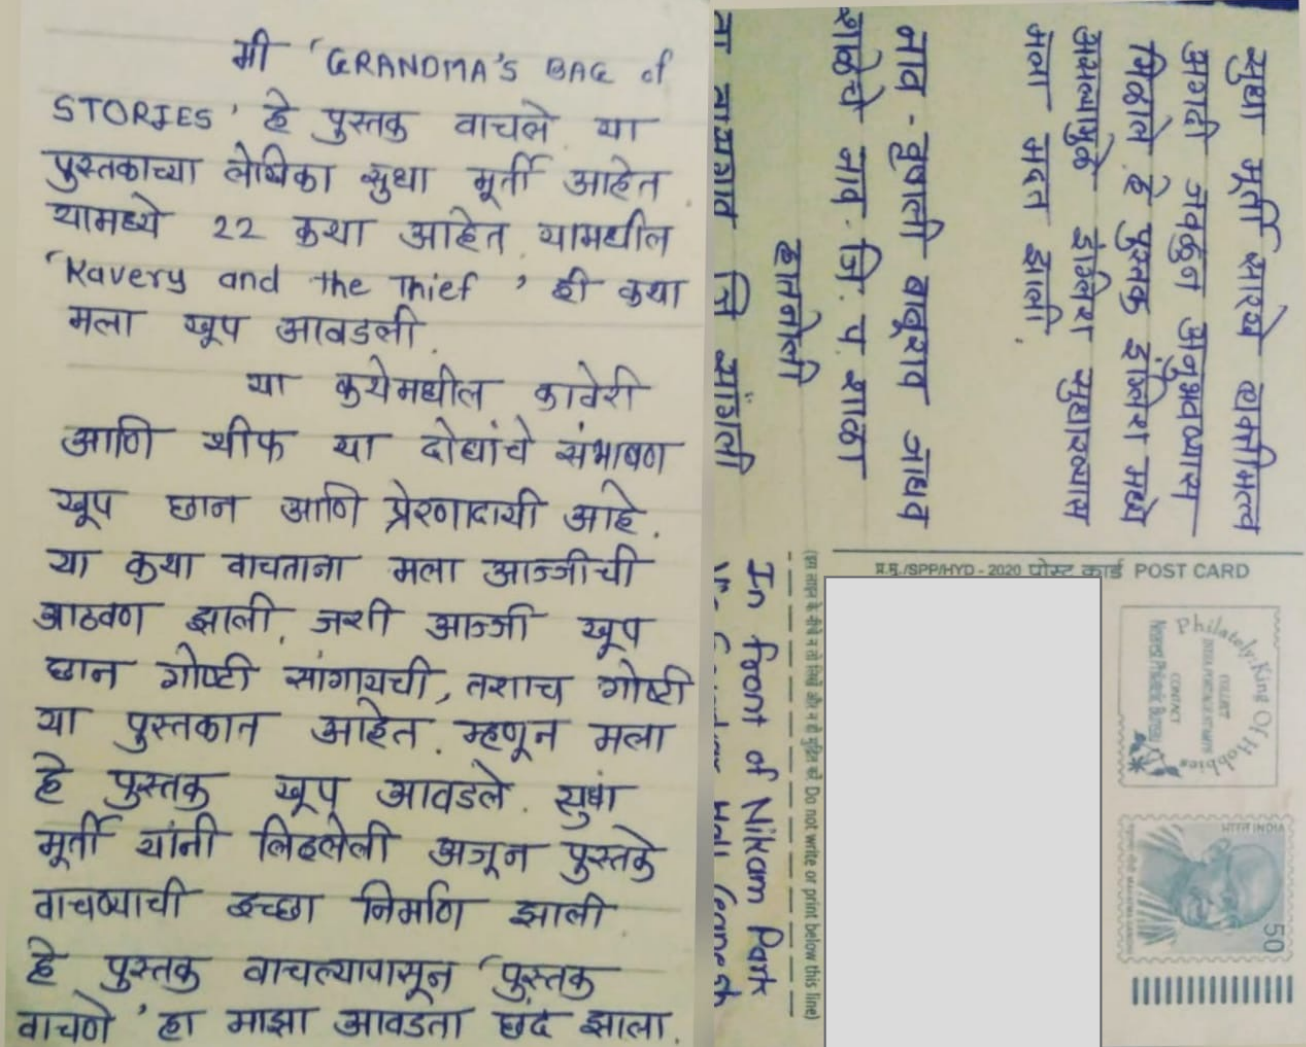 मी 'GRANDMA'S BAG of
STORIES' हे पुस्तक वाचले. या
पुस्तकाच्या लेखिका सुधा मूर्ती आहेत.
यामध्ये 22 कथा आहेत. यामधील
'Kavery and the Thief' ही कथा
मला खूप आवडली.
या कथेमधील कावेरी
आणि थीफ या दोघांचे संभाषण
खूप छान आणि प्रेरणादायी आहे.
या कथा वाचताना मला आज्जीची
आठवण झाली. जशी आज्जी खूप
छान गोष्टी सांगायची, तशाच गोष्टी
या पुस्तकात आहेत. म्हणून मला
हे पुस्तक खूप आवडले. सुधा
मूर्ती यांनी लिहलेली अजून पुस्तके
वाचण्याची इच्छा निर्माण झाली
हे पुस्तक वाचल्यापासून 'पुस्तक
वाचणे' हा माझा आवडता छंद झाला.
सुधा मूर्ती सारखे व्यक्तीमत्व
अगदी जवळून अनुभवण्यास
मिळाले. हे पुस्तक इंग्लिश मध्ये
असल्यामुळे इंग्लिश सुधारण्यास
मला मदत झाली.
नाव - वृषाली बाबूराव जाधव
शाळेचे नाव - जि. प. शाळा
हातनोली
ता तासगाव जि सांगली
प्र.मु./SPP/HYD - 2020 पोस्ट कार्ड POST CARD
Philately: King Of Hobbies
COLLECT
CONTACT
Nearest Philatelic Bureau
भारत INDIA
50
Do not write or print below this line)
In front of Nikam Park